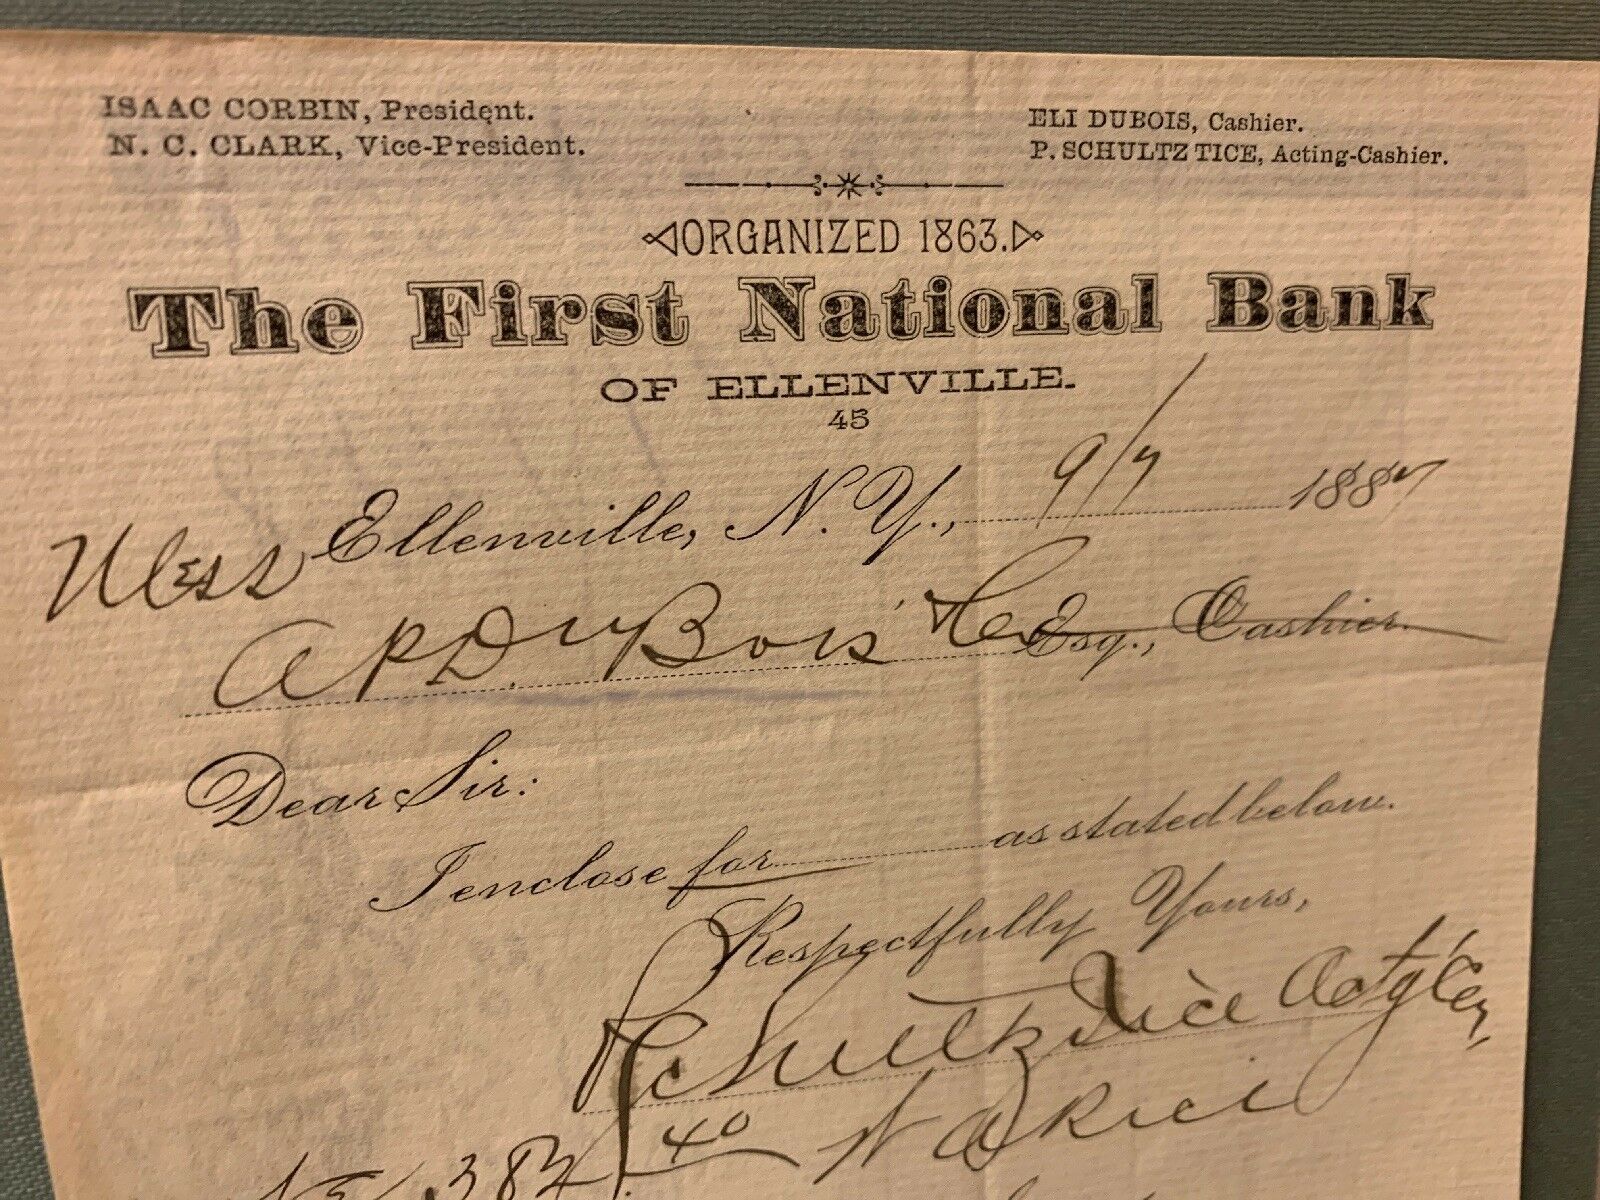 ISAAC CORBIN, President.
N. C. CLARK, Vice-President.
ELI DUBOIS, Cashier.
P. SCHULTZ TICE, Acting-Cashier.
ORGANIZED 1863.
The First National Bank
OF ELLENVILLE.
45
Ellenville, N. Y., 9/7 1887
Mess
A P. DuBois' Esq., Cashier.
Dear Sir:
I enclose for as stated below.
Respectfully Yours,
P Schultz Tice Actg Cas,
382 40